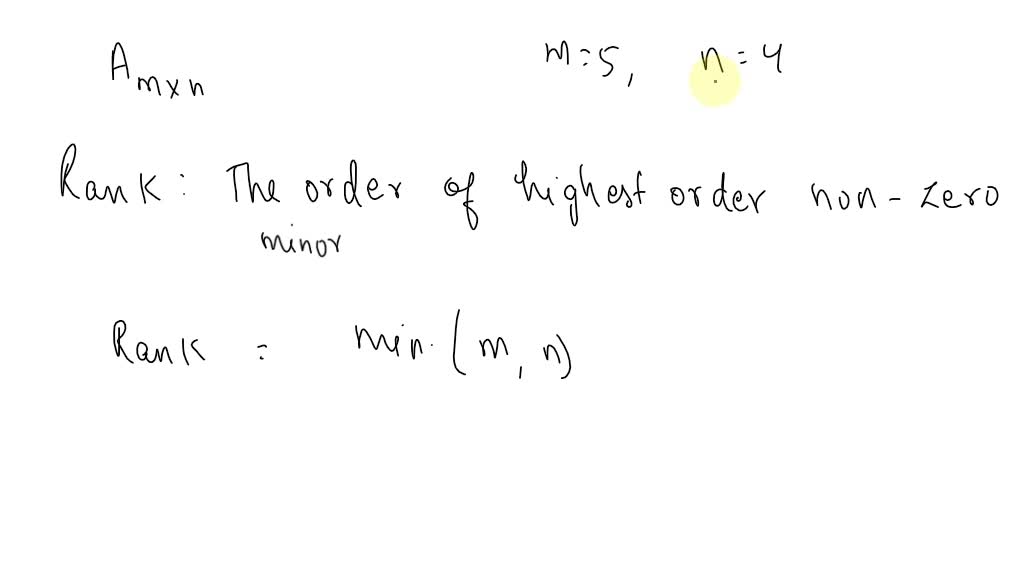 A m×n m=5, n=4
Rank: The order of highest order non-zero
minor
Rank = min. (m, n)